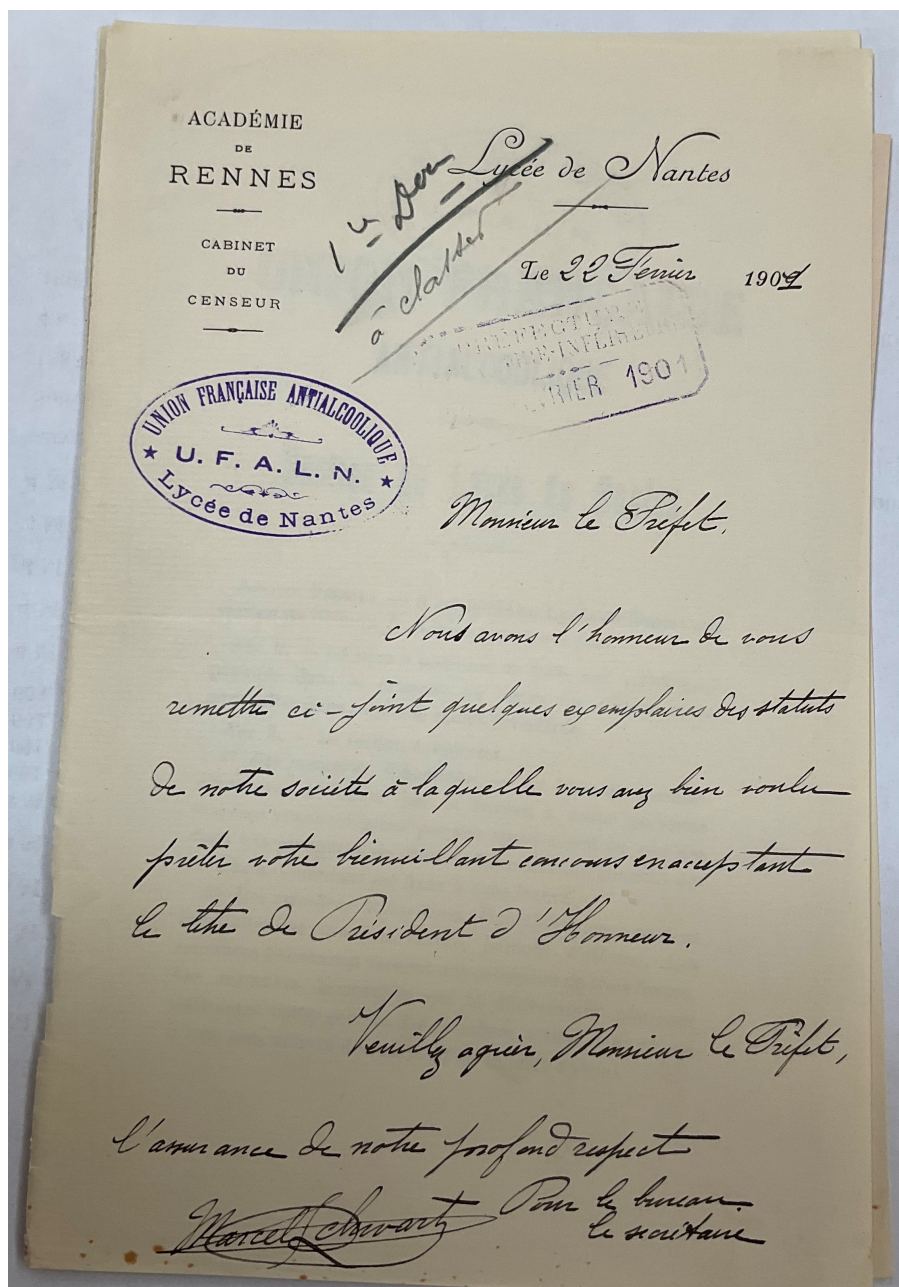 ACADÉMIE
DE
RENNES
CABINET
DU
CENSEUR
Lycée de Nantes
à classer
Le 22 Février 1901
PRÉFECTURE
INFÉRIEURE
FÉVRIER 1901
UNION FRANÇAISE ANTIALCOOLIQUE
U. F. A. L. N.
Lycée de Nantes
Monsieur le Préfet,
Nous avons l'honneur de vous
remettre ci-joint quelques exemplaires des statuts
de notre société à laquelle vous avez bien voulu
prêter votre bienveillant concours en acceptant
le titre de Président d'Honneur.
Veuillez agréer, Monsieur le Préfet,
l'assurance de notre profond respect
Pour le bureau
le secrétaire
Marcel Schwartz